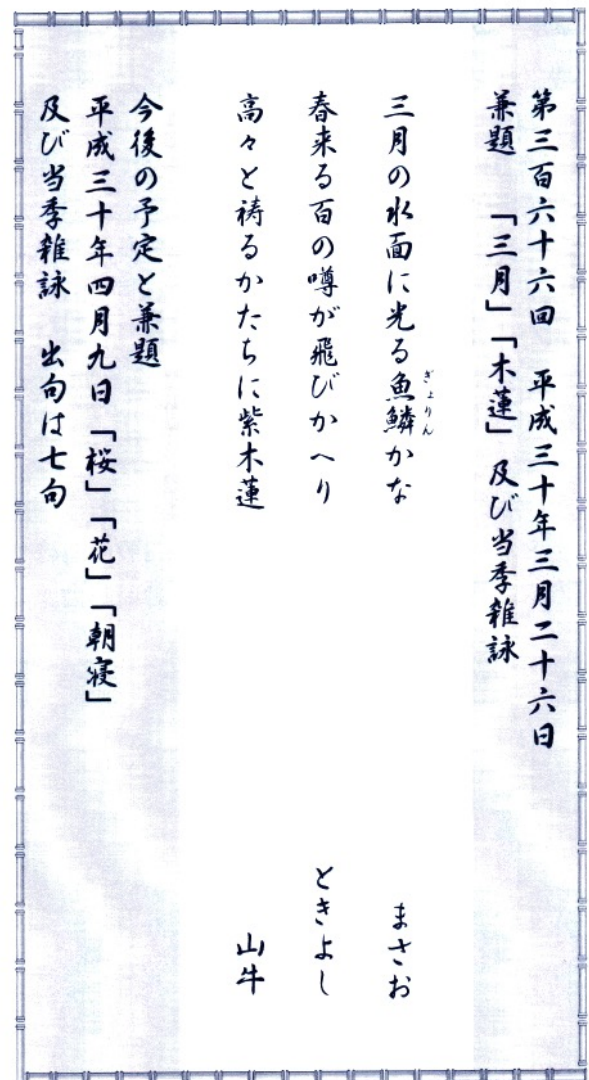 第三百六十六回　平成三十年三月二十六日
兼題　「三月」「木蓮」　及び当季雑詠
三月の水面に光る魚鱗かな　まさお
ぎょりん
春来る百の噂が飛びかへり　ときよし
高々と祷るかたちに紫木蓮　山牛
今後の予定と兼題
平成三十年四月九日「桜」「花」「朝寝」
及び当季雑詠　出句は七句